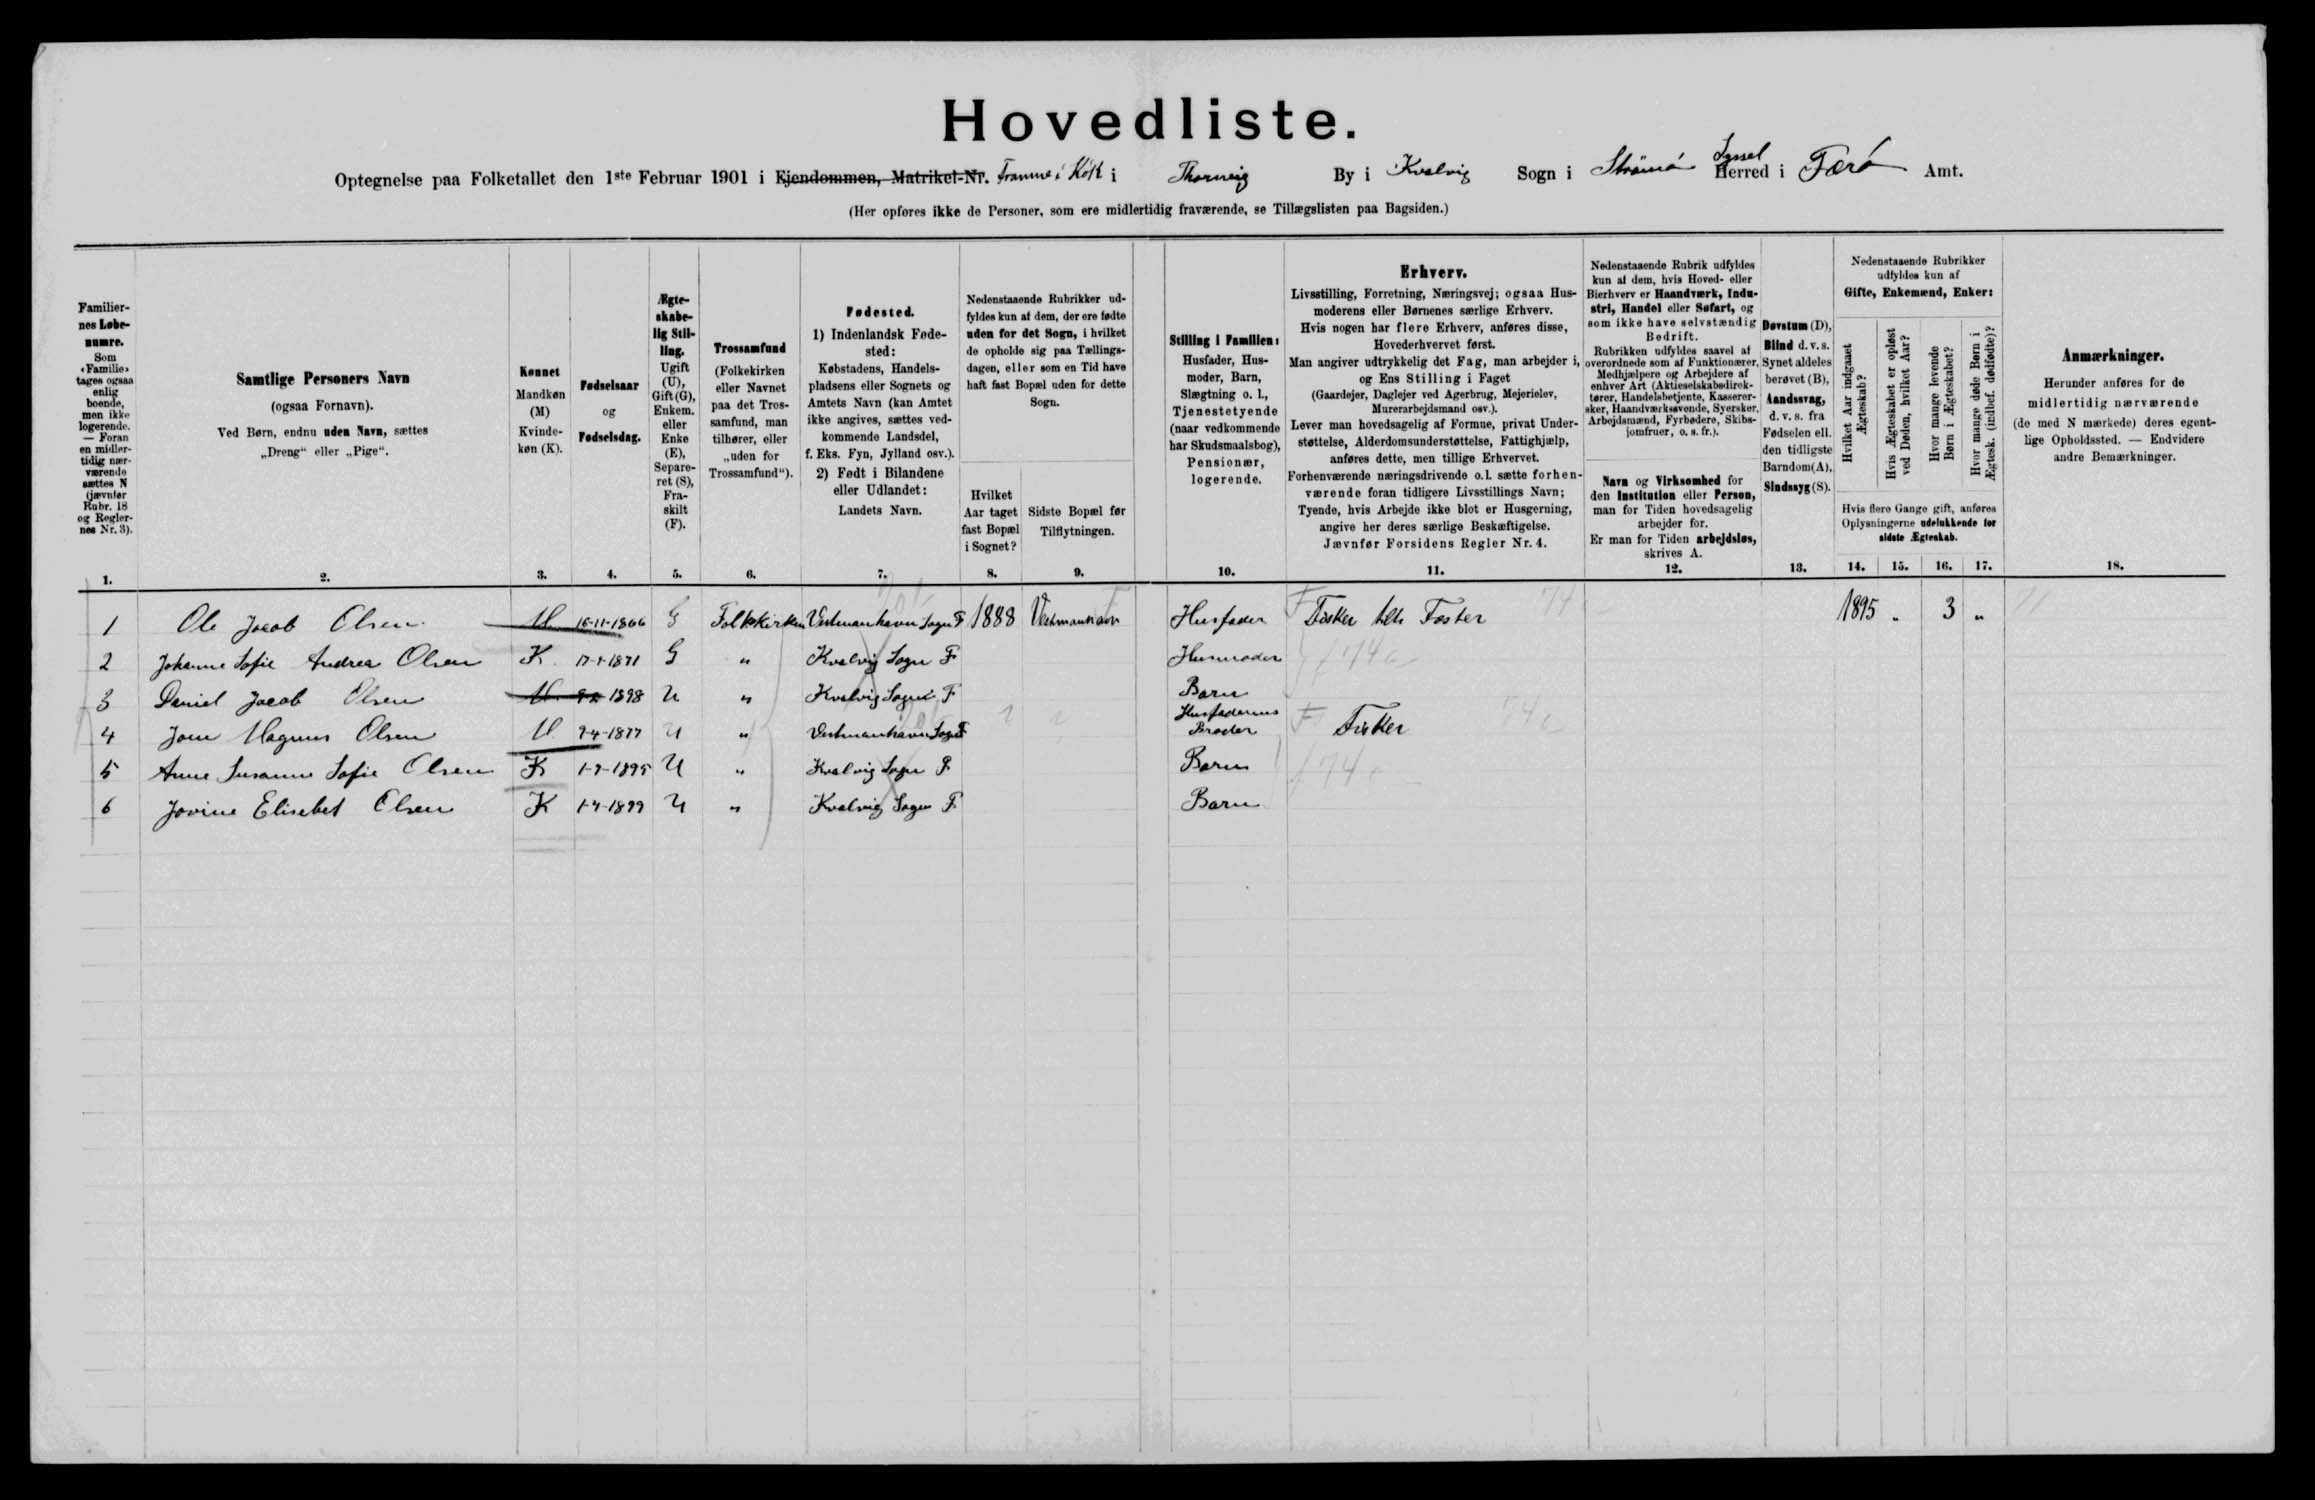 Hovedliste.
Optegnelse paa Folketallet den 1ste Februar 1901 i Ejendommen, Matrikel-Nr. Framme i Køk i Thornvig By i Kvalvig Sogn i Strømø Syssel Herred i Færø Amt.
(Her opføres ikke de Personer, som ere midlertidig fraværende, se Tillægslisten paa Bagsiden.)
Familiernes Løbenumre.
Som «Familie» tages ogsaa enlig boende, men ikke logerende. — Foran en midlertidig nærværende sættes N (jævnfør Rubr. 18 og Reglernes Nr. 3).
Samtlige Personers Navn
(ogsaa Fornavn).
Ved Børn, endnu uden Navn, sættes
„Dreng“ eller „Pige“.
Kønnet
Mandkøn (M)
Kvindekøn (K).
Fødselsaar
og
Fødselsdag.
Ægteskabelig Stilling.
Ugift (U), Gift (G), Enkem. eller Enke (E), Separeret (S), Fraskilt (F).
Trossamfund
(Folkekirken eller Navnet paa det Trossamfund, man tilhører, eller „uden for Trossamfund“).
Fødested.
1) Indenlandsk Fødested:
Købstadens, Handelspladsens eller Sognets og Amtets Navn (kan Amtet ikke angives, sættes vedkommende Landsdel, f. Eks. Fyn, Jylland osv.).
2) Født i Bilandene eller Udlandet:
Landets Navn.
Nedenstaaende Rubrikker udfyldes kun af dem, der ere fødte uden for det Sogn, i hvilket de opholde sig paa Tællingsdagen, eller som en Tid have haft fast Bopæl uden for dette Sogn.
Hvilket Aar taget fast Bopæl i Sognet?
Sidste Bopæl før Tilflytningen.
Stilling i Familien:
Husfader, Husmoder, Barn, Slægtning o. l., Tjenestetyende (naar vedkommende har Skudsmaalsbog), Pensionær, logerende.
Erhverv.
Livsstilling, Forretning, Næringsvej; ogsaa Husmoderens eller Børnenes særlige Erhverv.
Hvis nogen har flere Erhverv, anføres disse, Hovederhvervet først.
Man angiver udtrykkelig det Fag, man arbejder i, og Ens Stilling i Faget
(Gaardejer, Daglejer ved Agerbrug, Mejerielev, Murerarbejdsmand osv.).
Lever man hovedsagelig af Formue, privat Understøttelse, Alderdomsunderstøttelse, Fattighjælp, anføres dette, men tillige Erhvervet.
Forhenværende næringsdrivende o. l. sætte forhenværende foran tidligere Livsstillings Navn;
Tyende, hvis Arbejde ikke blot er Husgerning, angive her deres særlige Beskæftigelse.
Jævnfør Forsidens Regler Nr. 4.
Nedenstaaende Rubrik udfyldes kun af dem, hvis Hoved- eller Bierhverv er Haandværk, Industri, Handel eller Søfart, og som ikke have selvstændig Bedrift.
Rubrikken udfyldes saavel af overordnede som af Funktionærer, Medhjælpere og Arbejdere af enhver Art (Aktieselskabsdirektører, Handelsbetjente, Kassererske, Haandværkssvende, Syersker, Arbejdsmænd, Fyrbødere, Skibsjomfruer, o. s. fr.).
Navn og Virksomhed for den Institution eller Person, man for Tiden hovedsagelig arbejder for.
Er man for Tiden arbejdsløs, skrives A.
Døvstum (D), Blind d. v. s. Synet aldeles berøvet (B), Aandssvag, d. v. s. fra Fødselen ell. den tidligste Barndom (A), Sindssyg (S).
Nedenstaaende Rubrikker udfyldes kun af
Gifte, Enkemænd, Enker:
Hvilket Aar indgaaet Ægteskab?
Hvis Ægteskabet er opløst ved Døden, hvilket Aar?
Hvor mange levende Børn i Ægteskabet?
Hvor mange døde Børn i Ægtesk. (indbef. dødfødte)?
Hvis flere Gange gift, anføres Oplysningerne udelukkende for sidste Ægteskab.
Anmærkninger.
Herunder anføres for de midlertidig nærværende (de med N mærkede) deres egentlige Opholdssted. — Endvidere andre Bemærkninger.
1. 2. 3. 4. 5. 6. 7. 8. 9. 10. 11. 12. 13. 14. 15. 16. 17. 18.
1 Ole Jacob Olsen M 16-11-1866 G Folkekirken Vestmanhavn Sogn F 1888 Vestmanhavn Husfader Fisker 1895 „ 3 „
2 Johanne Sofie Andrea Olsen K 17-1-1871 G „ Kvalvig Sogn F Husmoder
3 Daniel Jacob Olsen M 1898 U „ Kvalvig Sogn F Barn
4 Joen Magnus Olsen M 7-4-1877 U „ Vestmanhavn Sogn F Husfaderens Broder Fisker
5 Anne Susanne Sofie Olsen K 1-9-1895 U „ Kvalvig Sogn F Barn
6 Jovine Elisebet Olsen K 1-4-1899 U „ Kvalvig Sogn F Barn